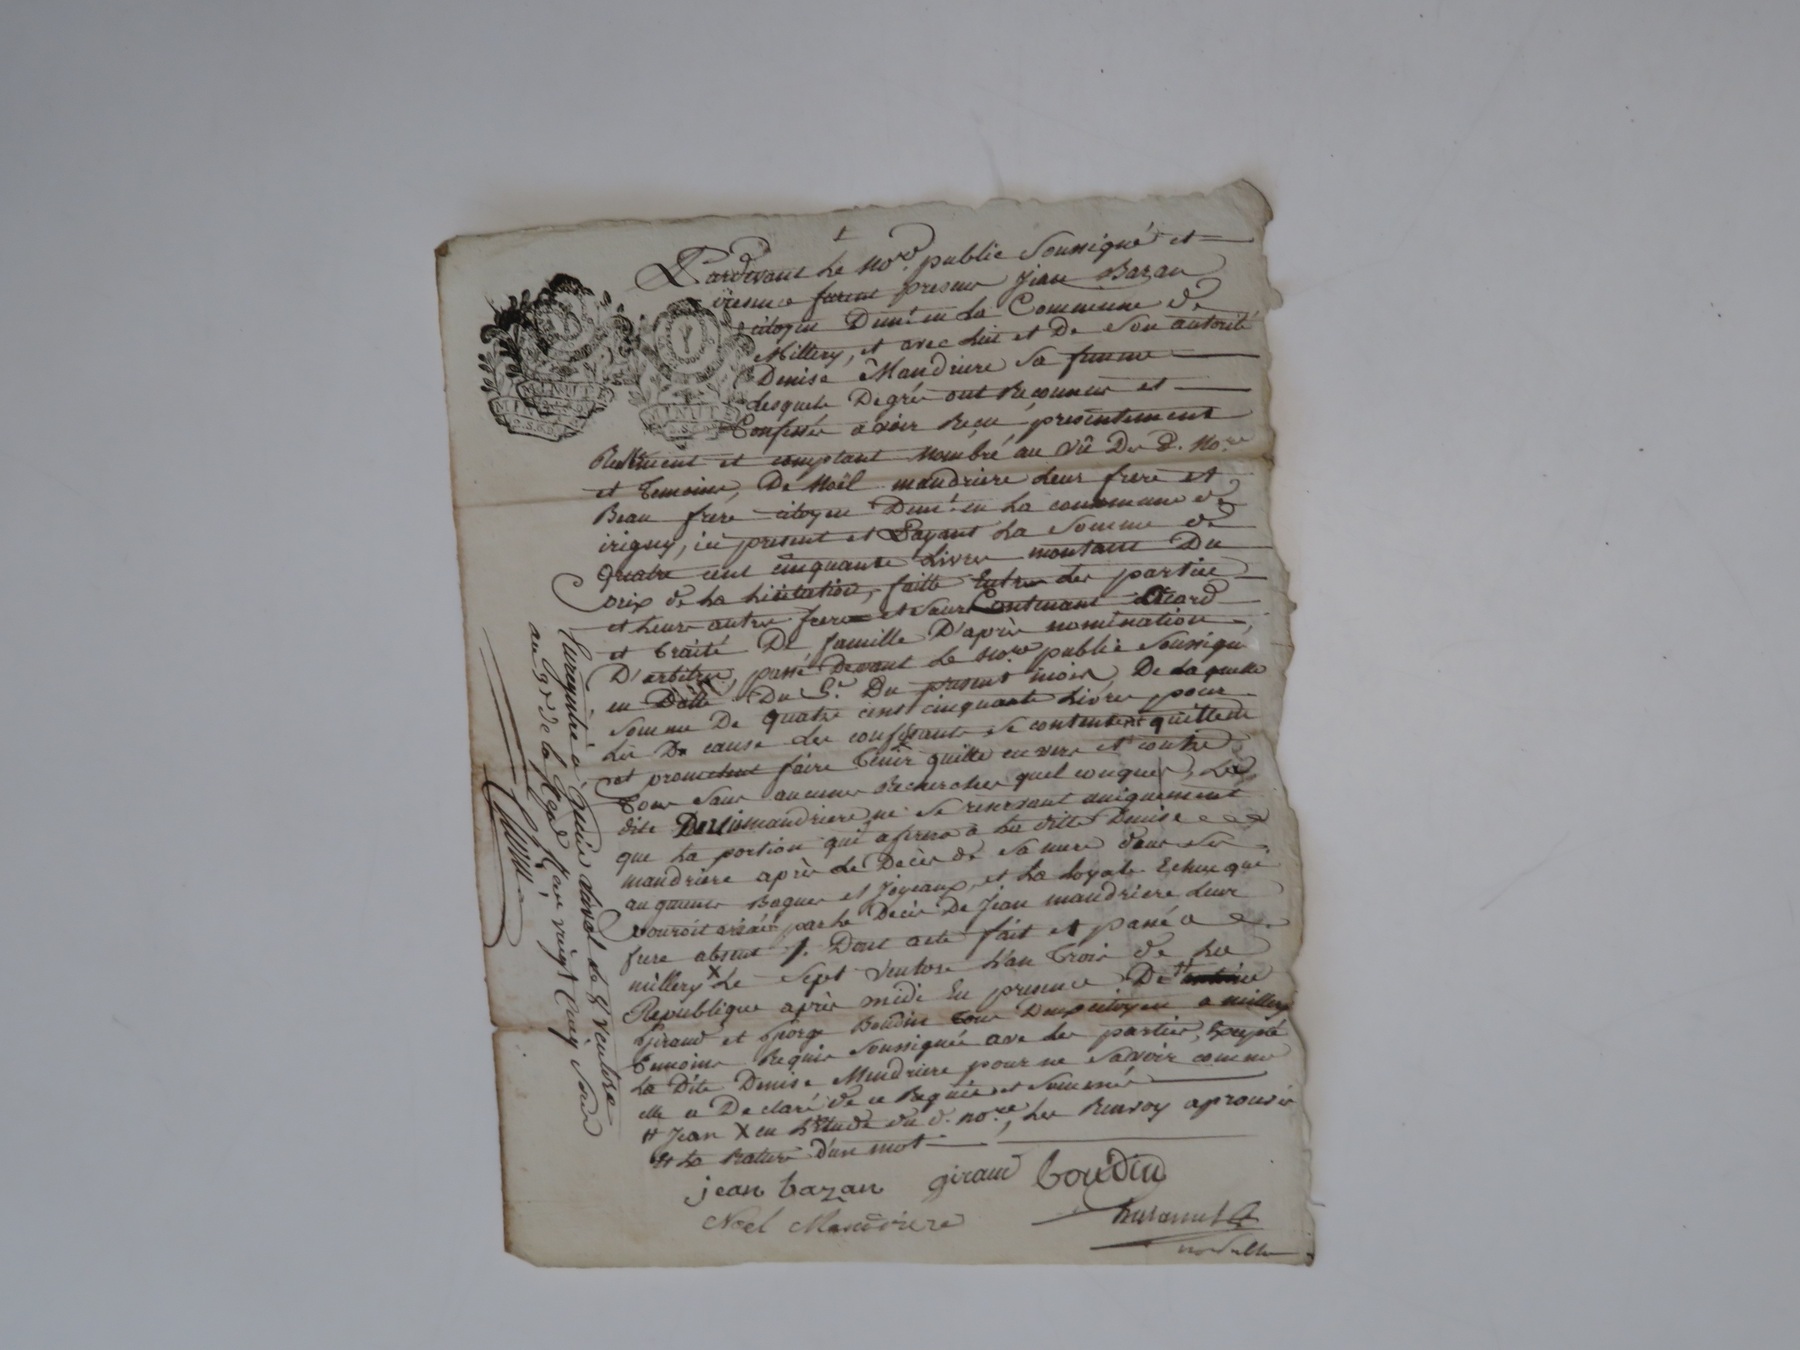 1
Pardevant Le no.re public Soussigné et
Temoins furent presens Jean Bazan
citoyen Demt. en La Commune de
Millery, et avec Lui et De son autorité
Denise Mandriere Sa femme
Lesquels De gré ont Reconnus et
Confessés avoir Reçu présentement
Reellement et comptant Nombré au vû Du d. No.re
et Temoins, De Noël mandriere Leur frere et
Beau frere citoyen Demt. en La commune de
irigny, ici present et Payant La Somme de
Quatre cent cinquante Livres montant Du
prix de La Licitation, faitte Entre Les parties
et Leurs autres freres et Sœurs Contenant accord
et Traité De famille D'après nomination
D'arbitres, passé Devant Le No.re public Soussigné
en Datte Du Du present mois, De Laquelle
Somme De quatre cent cinquante Livres pour
Les De cause Les confessants Se contentent quittent
et promettent faire Tenir quitte envers et contre
Tous Sans aucunes Recherches quelconques, La
dite Denise mandriere ne Se reservant uniquement
que La portion qui aferera à La ditte Denise
mandriere après Le Décès de Sa mere dans Ses
augments Bagues et Joyeaux, et La Loyale Echute qui
pouroit arriver par Le Decès De Jean mandriere Leur
frere absent /. Dont acte fait et passé à
millery X Le Sept Ventose L'an Trois de La
Republique après midi En presence De #
Giraud et George Boudin Tous Deux citoyens a millery
Temoins Requis Soussignés avec Les parties, Excepté
La Dite Denise Mandriere pour ne Savoir comme
elle a Declaré de ce Requise et Sommée
# Jean X en L'Etude du d. no.re, Les Renvoy aprouvés
# La Rature d'un mot
jean bazan giraud boudin
Noel Mandriere
Enregistré à Genis Laval le 8 Ventose
an 3e de la Répub. Reçu vingt cinq Sous